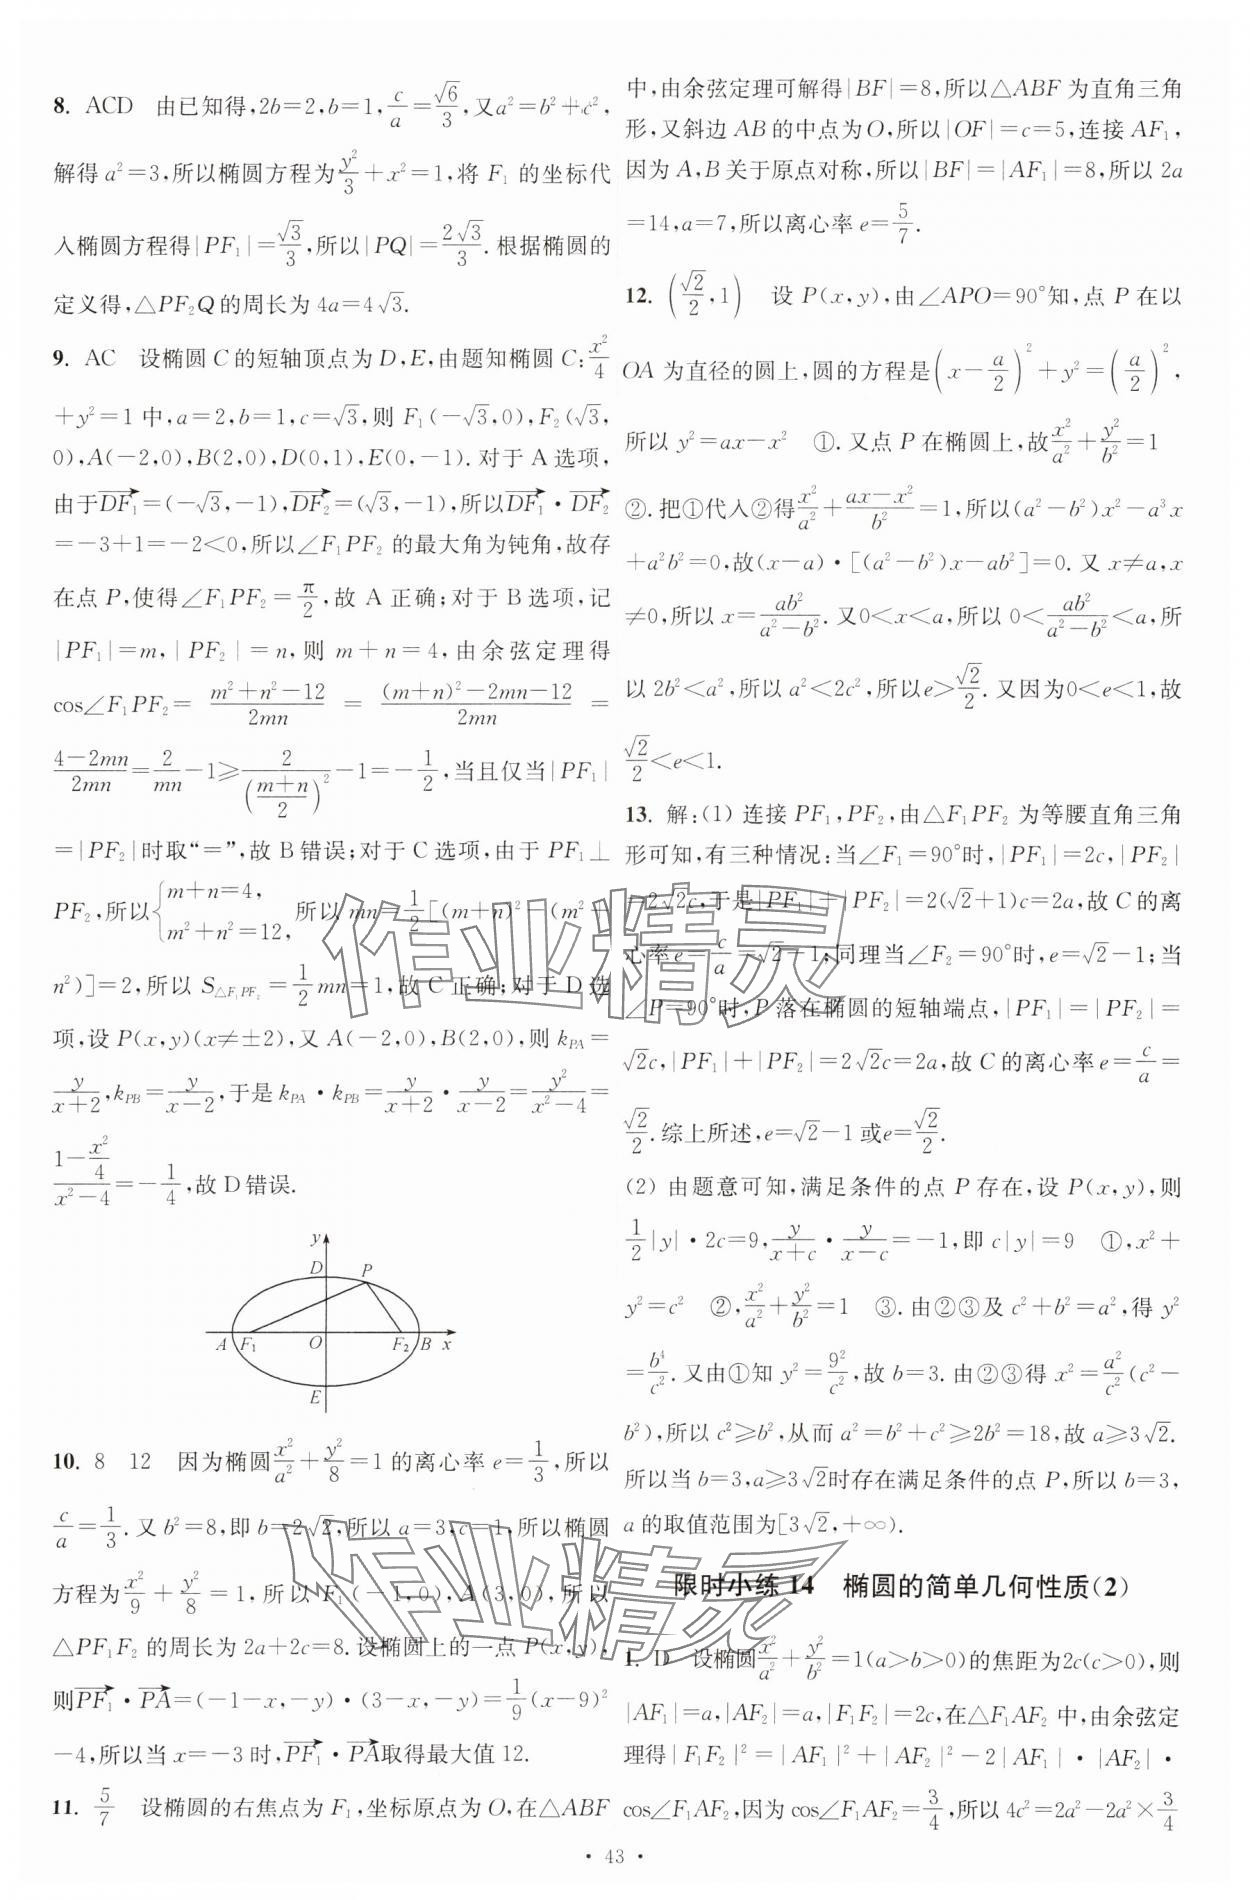 8. ACD 由已知得,2b=2,b=1,$\frac{c}{a}=\frac{\sqrt{6}}{3}$,又a²=b²+c²,
解得a²=3,所以椭圆方程为$\frac{y^2}{3}$+x²=1,将F₁的坐标代
入椭圆方程得|PF₁|=$\frac{\sqrt{3}}{3}$,所以|PQ|=$\frac{2\sqrt{3}}{3}$.根据椭圆的
定义得,△PF₂Q的周长为4a=4√3.
9. AC 设椭圆C的短轴顶点为D,E,由题知椭圆C:$\frac{x^2}{4}$
+y²=1中,a=2,b=1,c=√3,则F₁(-√3,0),F₂(√3,
0),A(-2,0),B(2,0),D(0,1),E(0,-1).对于A选项,
由于$\overrightarrow{DF_1}$=(-√3,-1),$\overrightarrow{DF_2}$=(√3,-1),所以$\overrightarrow{DF_1}·\overrightarrow{DF_2}$
=-3+1=-2<0,所以∠F₁PF₂的最大角为钝角,故存
在点P,使得∠F₁PF₂=$\frac{π}{2}$,故A正确;对于B选项,记
|PF₁|=m,|PF₂|=n,则m+n=4,由余弦定理得
cos∠F₁PF₂=$\frac{m^2+n^2-12}{2mn}$=$\frac{(m+n)^2-2mn-12}{2mn}$=
$\frac{4-2mn}{2mn}=\frac{2}{mn}-1≥\frac{2}{(\frac{m+n}{2})^2}-1=-\frac{1}{2}$,当且仅当|PF₁|
=|PF₂|时取“=”,故B错误;对于C选项,由于PF₁⊥
PF₂,所以$\begin{cases}m+n=4,\\m^2+n^2=12,\end{cases}$所以mn=$\frac{1}{2}$[(m+n)²-(m²+
n²)]=2,所以$S_{△F_1PF_2}=\frac{1}{2}$mn=1,故C正确;对于D选
项,设P(x,y)(x≠±2),又A(-2,0),B(2,0),则$k_{PA}$=
$\frac{y}{x+2}$,$k_{PB}=\frac{y}{x-2}$,于是$k_{PA}·k_{PB}=\frac{y}{x+2}·\frac{y}{x-2}=\frac{y^2}{x^2-4}$=
$\frac{1-\frac{x^2}{4}}{x^2-4}=-\frac{1}{4}$,故D错误.
y
D P
A F₁ O F₂ B x
E
10. 8 12 因为椭圆$\frac{x^2}{a^2}+\frac{y^2}{8}$=1的离心率e=$\frac{1}{3}$,所以
$\frac{c}{a}=\frac{1}{3}$.又b²=8,即b=2√2,所以a=3,c=1,所以椭圆
方程为$\frac{x^2}{9}+\frac{y^2}{8}$=1,所以F₁(-1,0),A(3,0),所以
△PF₁F₂的周长为2a+2c=8.设椭圆上的一点P(x,y),
则$\overrightarrow{PF_1}·\overrightarrow{PA}$=(-1-x,-y)·(3-x,-y)=$\frac{1}{9}$(x-9)²
-4,所以当x=-3时,$\overrightarrow{PF_1}·\overrightarrow{PA}$取得最大值12.
11. $\frac{5}{7}$ 设椭圆的右焦点为F₁,坐标原点为O,在△ABF
中,由余弦定理可解得|BF|=8,所以△ABF为直角三角
形,又斜边AB的中点为O,所以|OF|=c=5,连接AF₁,
因为A,B关于原点对称,所以|BF|=|AF₁|=8,所以2a
=14,a=7,所以离心率e=$\frac{5}{7}$.
12. $(\frac{\sqrt{2}}{2},1)$ 设P(x,y),由∠APO=90°知,点P在以
OA为直径的圆上,圆的方程是$(x-\frac{a}{2})^2+y^2=(\frac{a}{2})^2$,
所以y²=ax-x² ①.又点P在椭圆上,故$\frac{x^2}{a^2}+\frac{y^2}{b^2}$=1
②.把①代入②得$\frac{x^2}{a^2}+\frac{ax-x^2}{b^2}$=1,所以(a²-b²)x²-a³x
+a²b²=0,故(x-a)·[(a²-b²)x-ab²]=0.又x≠a,x
≠0,所以x=$\frac{ab^2}{a^2-b^2}$.又0<x<a,所以0<$\frac{ab^2}{a^2-b^2}$<a,所
以2b²<a²,所以a²<2c²,所以e>$\frac{\sqrt{2}}{2}$.又因为0<e<1,故
$\frac{\sqrt{2}}{2}$<e<1.
13. 解:(1) 连接PF₁,PF₂,由△F₁PF₂为等腰直角三角
形可知,有三种情况:当∠F₁=90°时,|PF₁|=2c,|PF₂|
=2√2c,于是|PF₁|+|PF₂|=2(√2+1)c=2a,故C的离
心率e=$\frac{c}{a}$=√2-1;同理当∠F₂=90°时,e=√2-1;当
∠P=90°时,P落在椭圆的短轴端点,|PF₁|=|PF₂|=
√2c,|PF₁|+|PF₂|=2√2c=2a,故C的离心率e=$\frac{c}{a}$=
$\frac{\sqrt{2}}{2}$.综上所述,e=√2-1或e=$\frac{\sqrt{2}}{2}$.
(2) 由题意可知,满足条件的点P存在,设P(x,y),则
$\frac{1}{2}$|y|·2c=9,$\frac{y}{x+c}·\frac{y}{x-c}$=-1,即c|y|=9 ①,x²+
y²=c² ②,$\frac{x^2}{a^2}+\frac{y^2}{b^2}$=1 ③.由②③及c²+b²=a²,得y²
=$\frac{b^4}{c^2}$.又由①知y²=$\frac{9^2}{c^2}$,故b=3.由②③得x²=$\frac{a^2}{c^2}$(c²-
b²),所以c²≥b²,从而a²=b²+c²≥2b²=18,故a≥3√2.
所以当b=3,a≥3√2时存在满足条件的点P,所以b=3,
a的取值范围为[3√2,+∞).
限时小练14 椭圆的简单几何性质(2)
1. D 设椭圆$\frac{x^2}{a^2}+\frac{y^2}{b^2}$=1(a>b>0)的焦距为2c(c>0),则
|AF₁|=a,|AF₂|=a,|F₁F₂|=2c,在△F₁AF₂中,由余弦定
理得|F₁F₂|²=|AF₁|²+|AF₂|²-2|AF₁|·|AF₂|·
cos∠F₁AF₂,因为cos∠F₁AF₂=$\frac{3}{4}$,所以4c²=2a²-2a²×$\frac{3}{4}$
· 43 ·
作业精灵
作业精灵